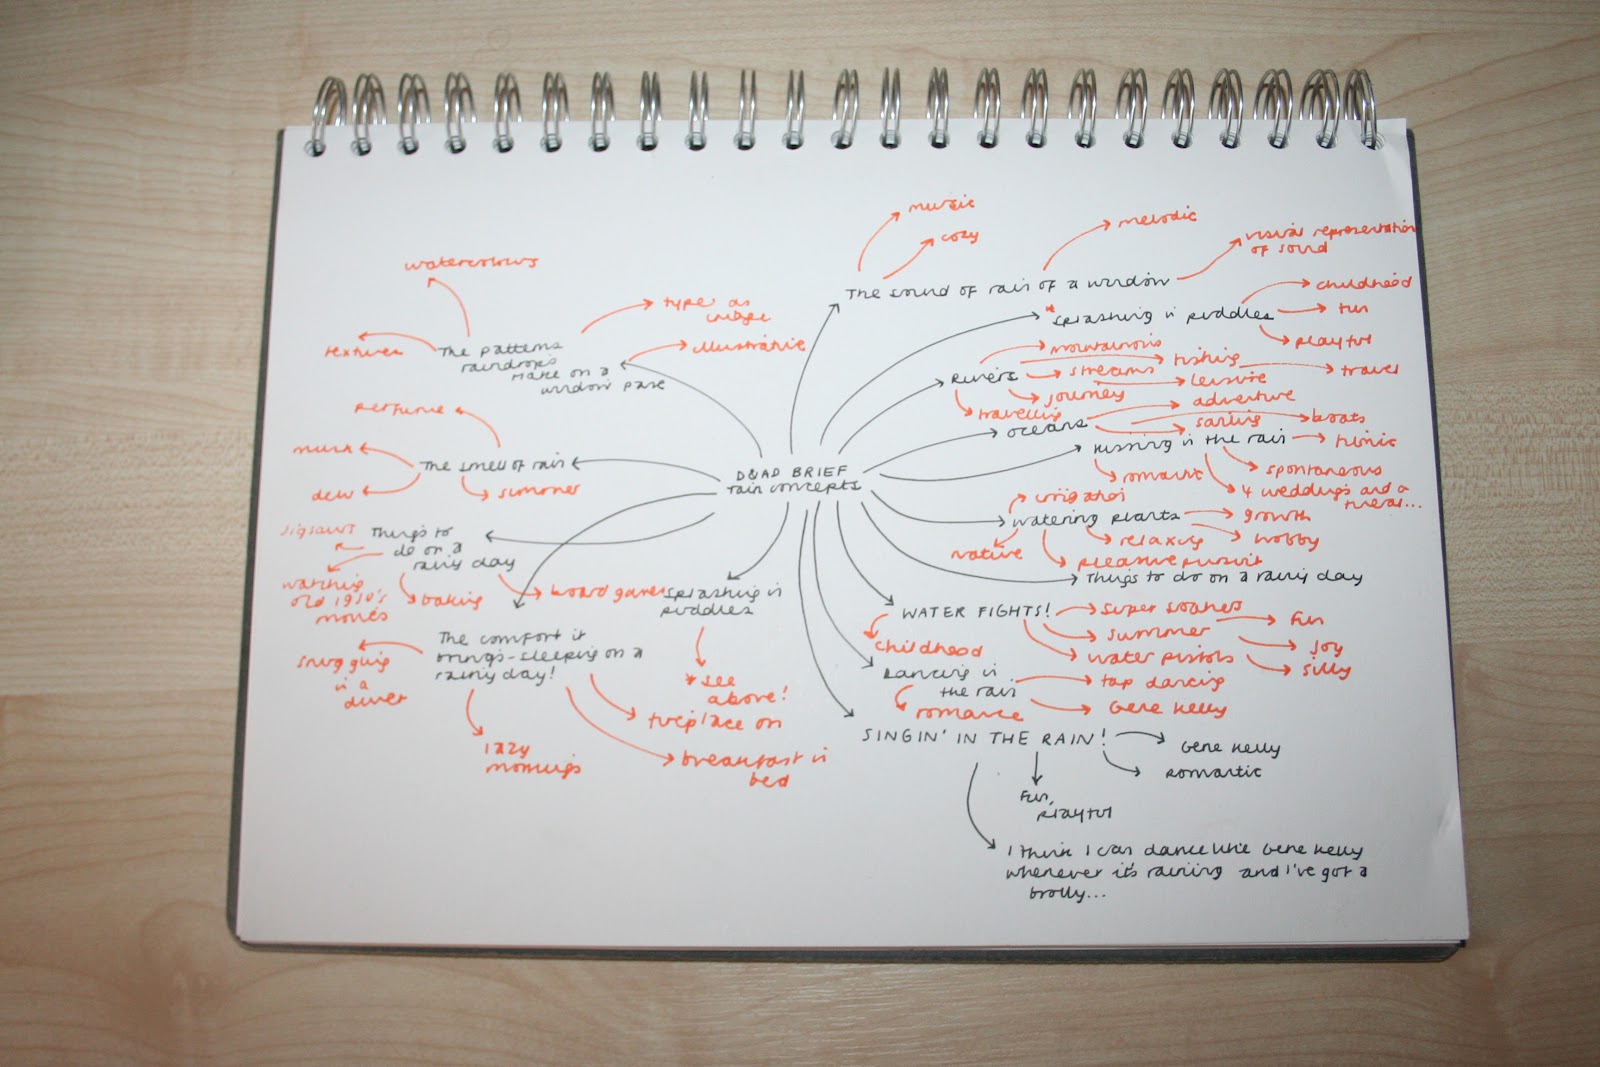 D&AD BRIEF
rain concepts
The sound of rain of a window
music
cozy
melodic
visual representation
of sound
* splashing in puddles
childhood
fun
playful
Rivers
mountainous
streams
fishing
leisure
travel
journey
travelling
oceans
adventure
sailing
boats
kissing in the rain
filmic
romantic
spontaneous
4 weddings and a
funeral...
watering plants
irrigation
growth
hobby
relaxing
native
pleasure pursuit
Things to do on a rainy day
WATER FIGHTS!
super soakers
fun
summer
joy
water pistols
silly
childhood
Dancing in
the rain
tap dancing
Gene Kelly
romance
SINGIN' IN THE RAIN!
Gene Kelly
romantic
Fun,
playful
I think I can dance like Gene Kelly
whenever it's raining and I've got a
brolly...
The patterns
raindrops
make on a
window pane
watercolours
textures
type as
image
illustrative
The smell of rain
perfume
musk
dew
summer
Things to
do on a
rainy day
Jigsaws
watching
old 1950's
movies
baking
board games
splashing in
puddles
* see
above!
The comfort it
brings - sleeping on a
rainy day!
snuggling
in a
duvet
lazy
mornings
fireplace on
breakfast in
bed